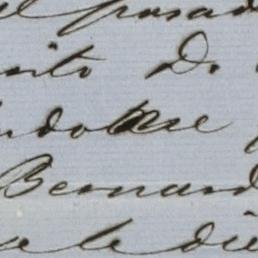 el pasad
nito Dn
ndose
Bernard
se le die